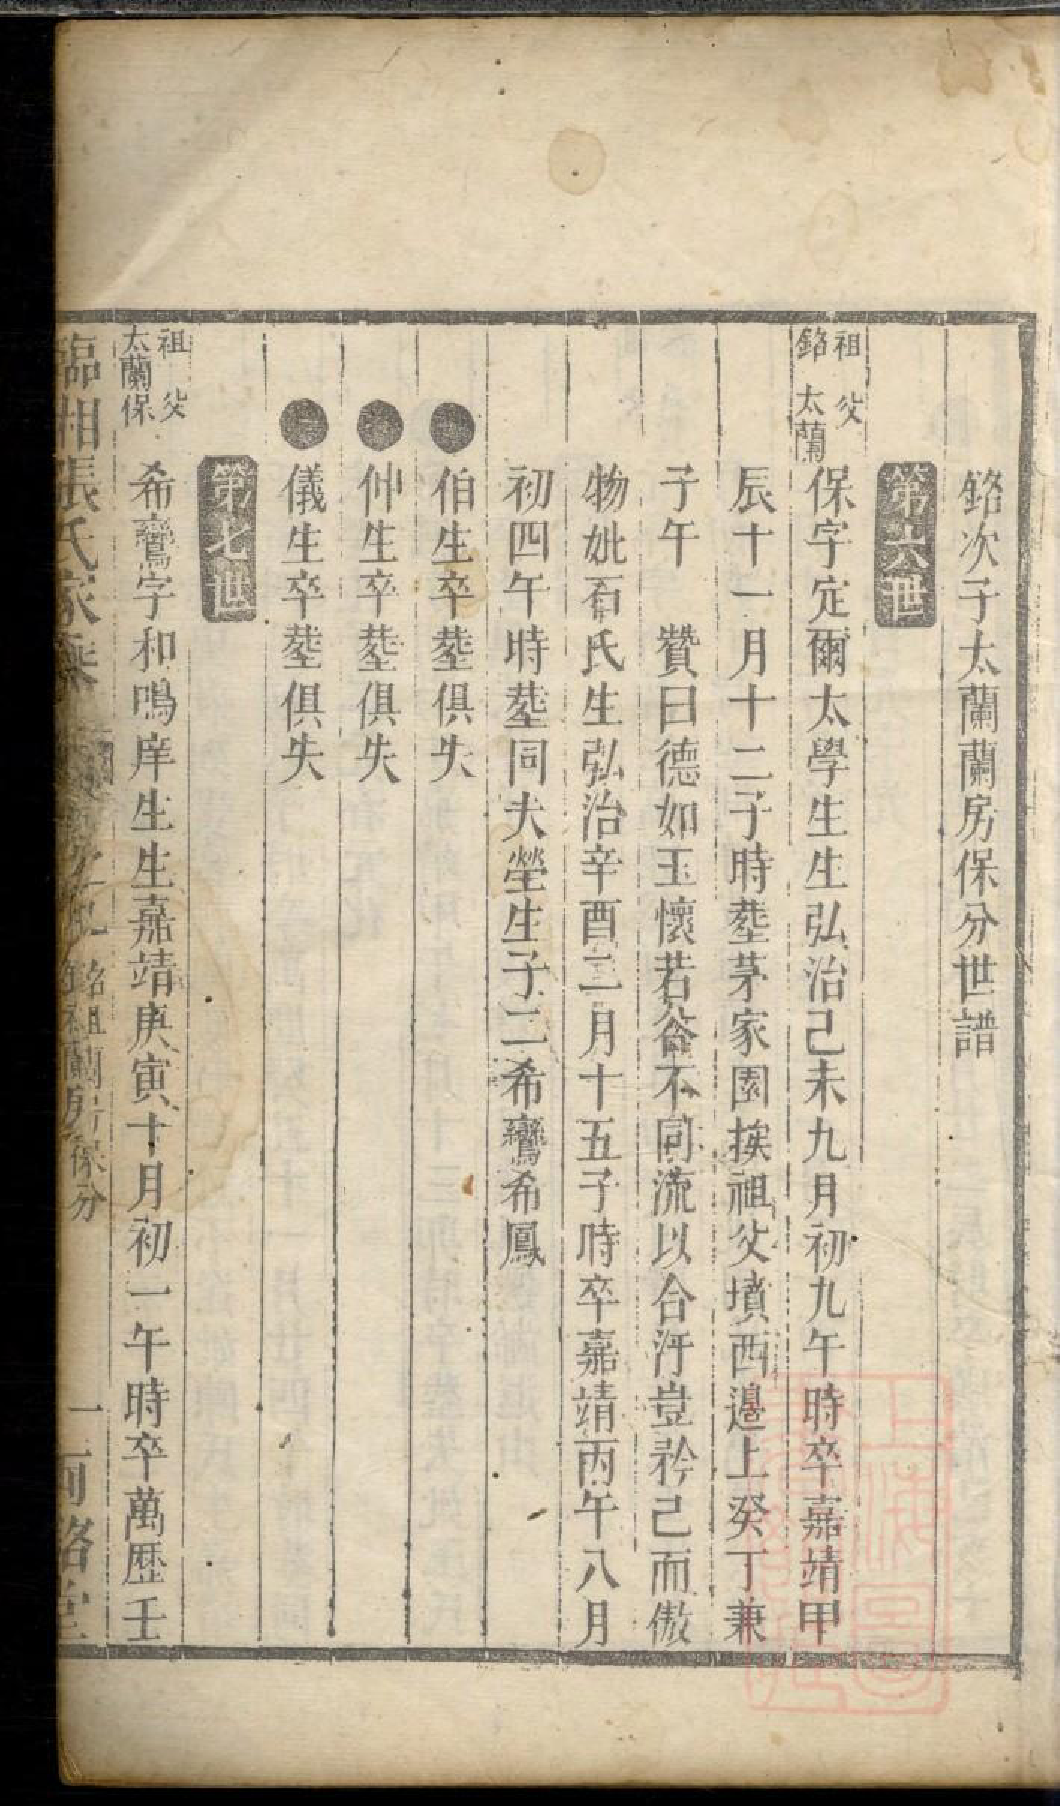 銘次子太蘭蘭房保分世譜
第六世
祖 父
銘 太蘭
保字定爾太學生生弘治己未九月初九午時卒嘉靖甲
辰十一月十二子時塟茅家園挨祖父墳西邊上癸丁兼
子午 贊曰德如玉懷若谷不同流以合汙豈矜己而傲
物妣石氏生弘治辛酉二月十五子時卒嘉靖丙午八月
初四午時塟同夫塋生子二希鸞希鳳
伯生卒塟俱失
仲生卒塟俱失
儀生卒塟俱失
第七世
祖 父
太蘭保
希鸞字和鳴庠生生嘉靖庚寅十月初一午時卒萬歷壬
臨湘張氏家乘 銘祖蘭房保分 一